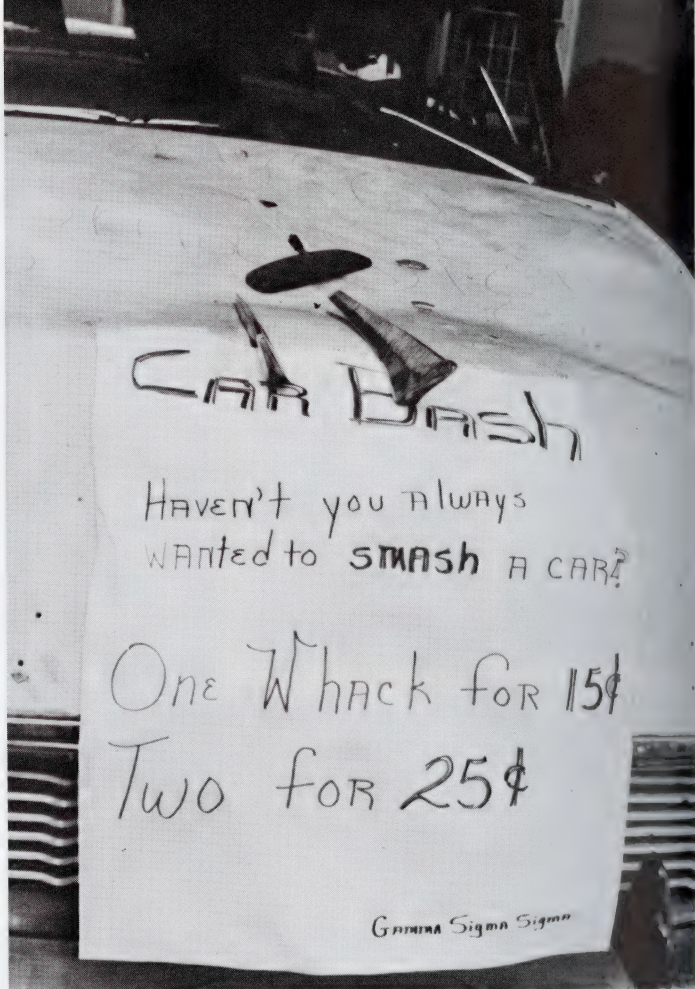 Car Bash
Haven't you always
wanted to smash a car?
One Whack for 15¢
Two for 25¢
Gamma Sigma Sigma